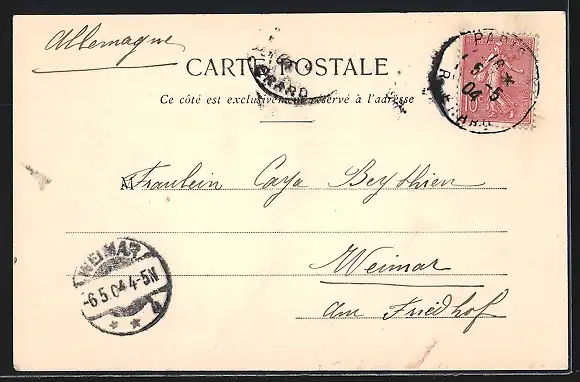 Allemagne
CARTE POSTALE
Ce côté est exclusivement réservé à l'adresse
PARIS
5-5
04
R. CRARD
10
M
Fraulein Caya Beythien
Weimar
am Friedhof
WEIMAR
-6.5.04 4-5N